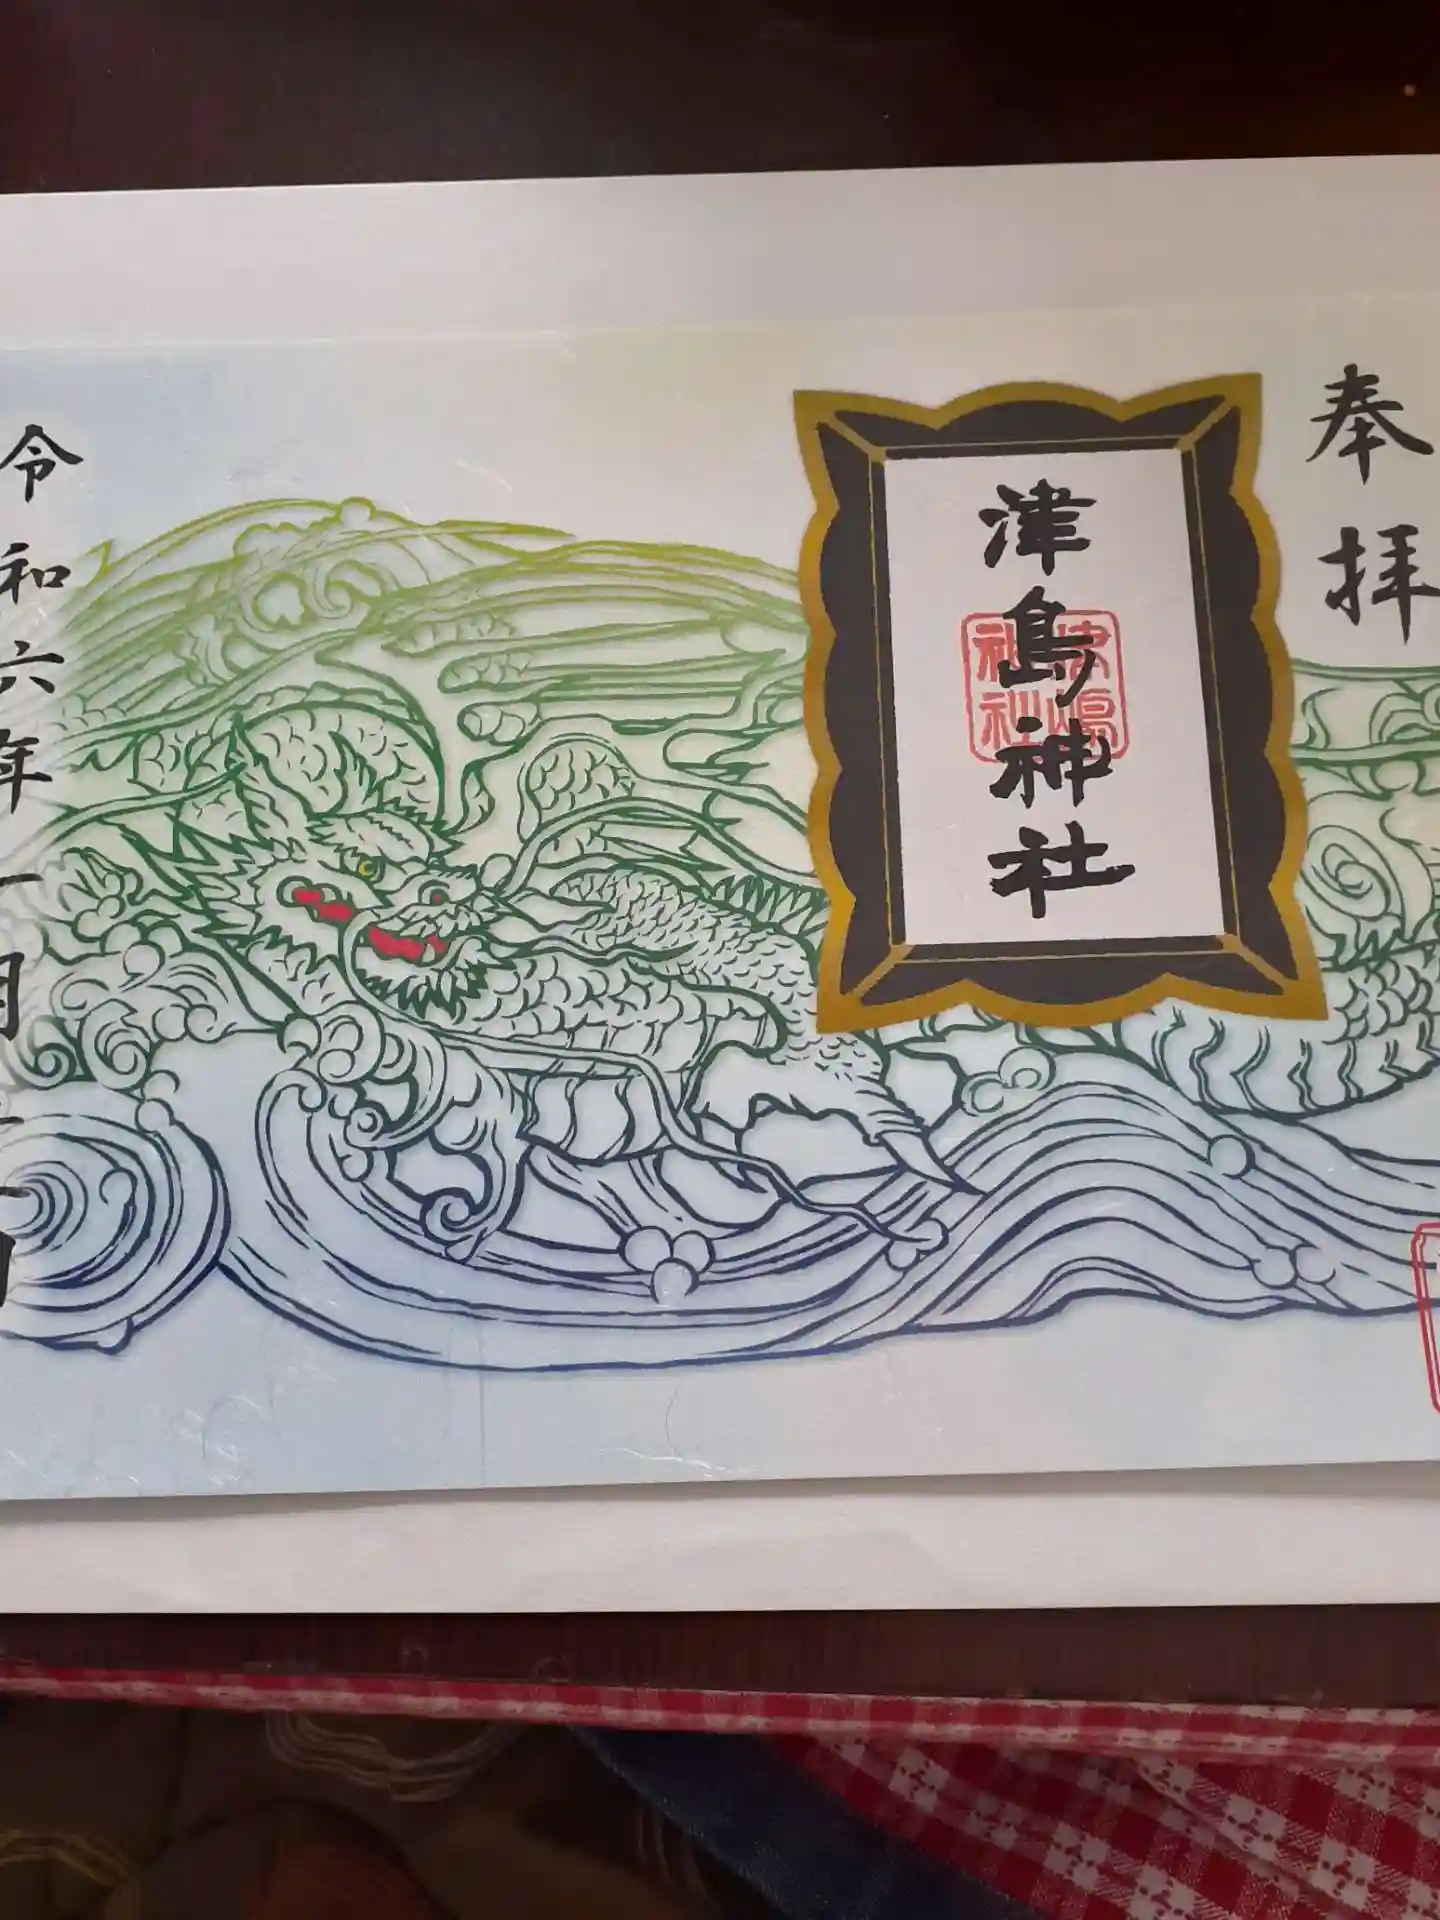 奉拝
津島神社
津嶋
神社
令和六年一月